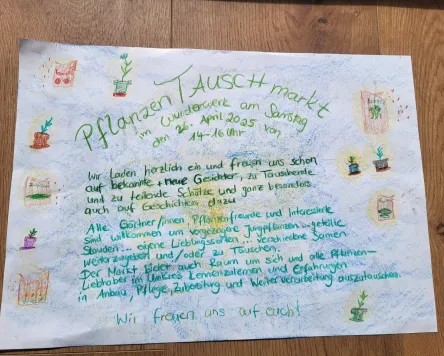 PflanzenTAUSCHmarkt
im Wunderwerk am Samstag
den 26. April 2025 von
14-16 Uhr
Wir laden herzlich ein und freuen uns schon
auf bekannte + neue Gesichter, zu Tauschende
und zu teilende Schätze und ganz besonders
auch auf Geschichten dazu
Alle Gärtner/innen, Pflanzenfreunde und Interessierte
sind willkommen um vorgezogene Jungpflanzen... geteilte
Stauden... eigene Lieblingssorten... verschiedene Samen
weiterzugeben und/oder zu Tauschen.
Der Markt bietet auch Raum um sich und alle Pflanzen-
liebhaber im Umkreis kennenzulernen und Erfahrungen
in Anbau, Pflege, Zubereitung und Weiterverarbeitung auszutauschen.
Wir freuen uns auf euch!